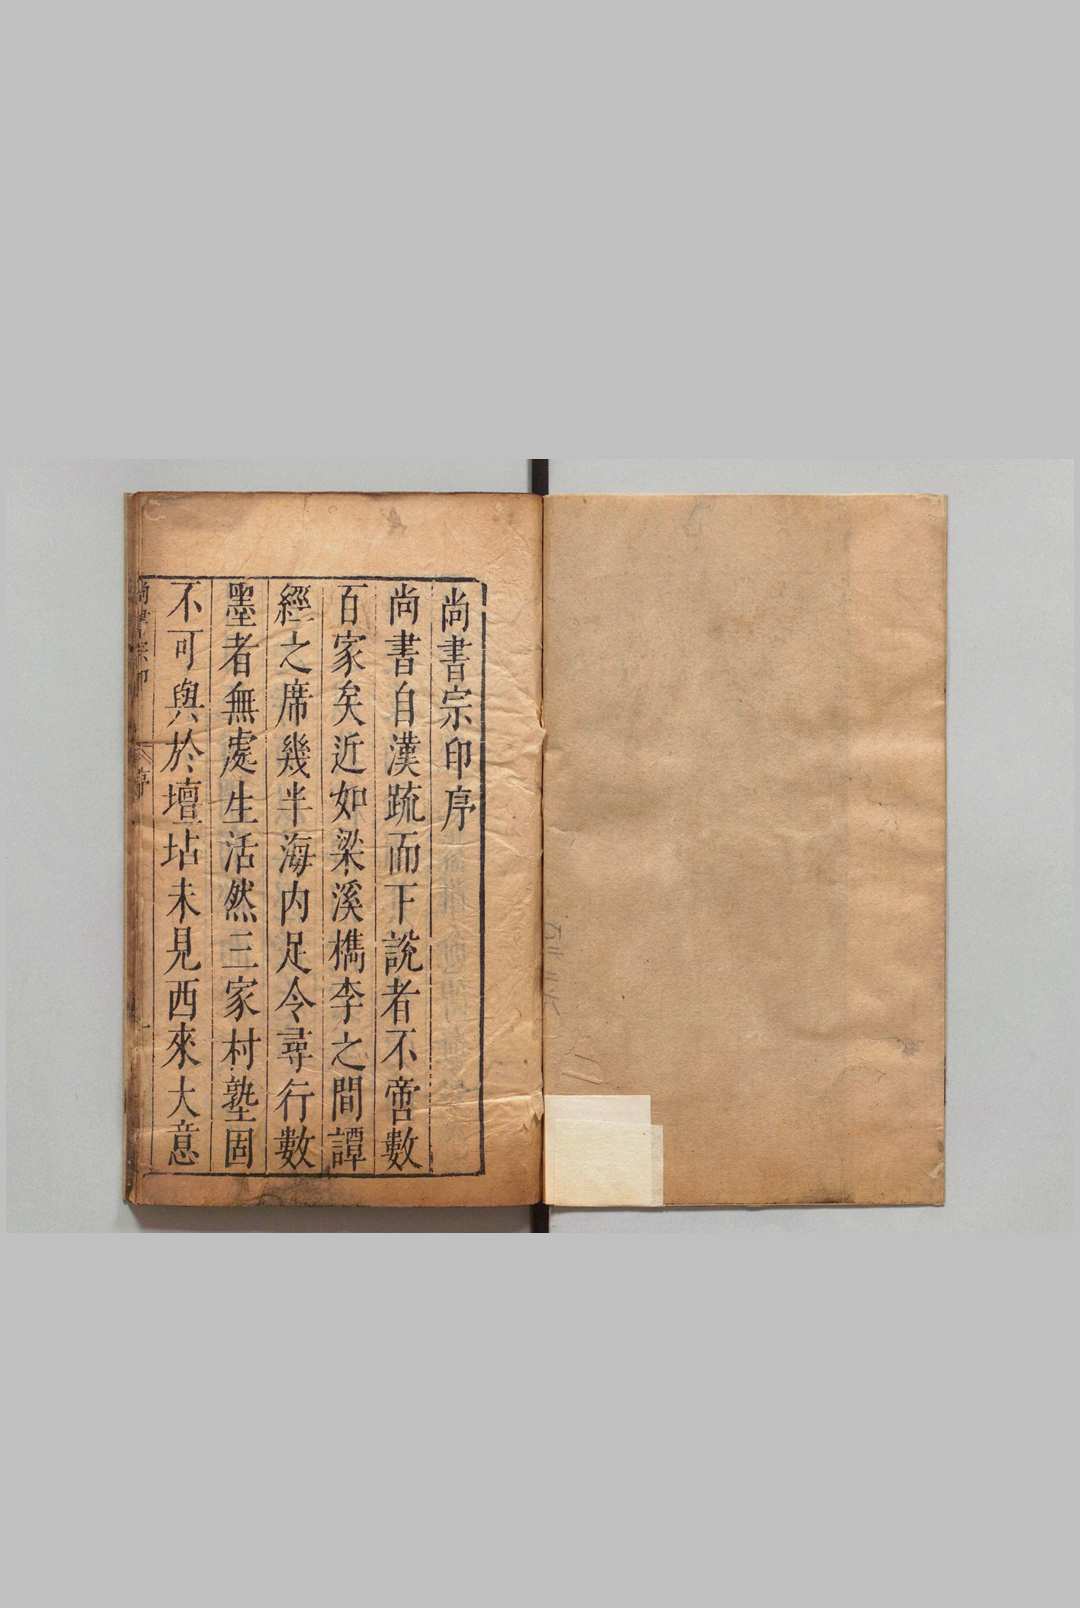 尚書宗印序
尚書自漢疏而下說者不啻數
百家矣近如梁溪檇李之間譚
經之席幾半海内足令尋行數
墨者無處生活然三家村塾固
不可與於壇坫未見西來大意
尚書宗印
序
一